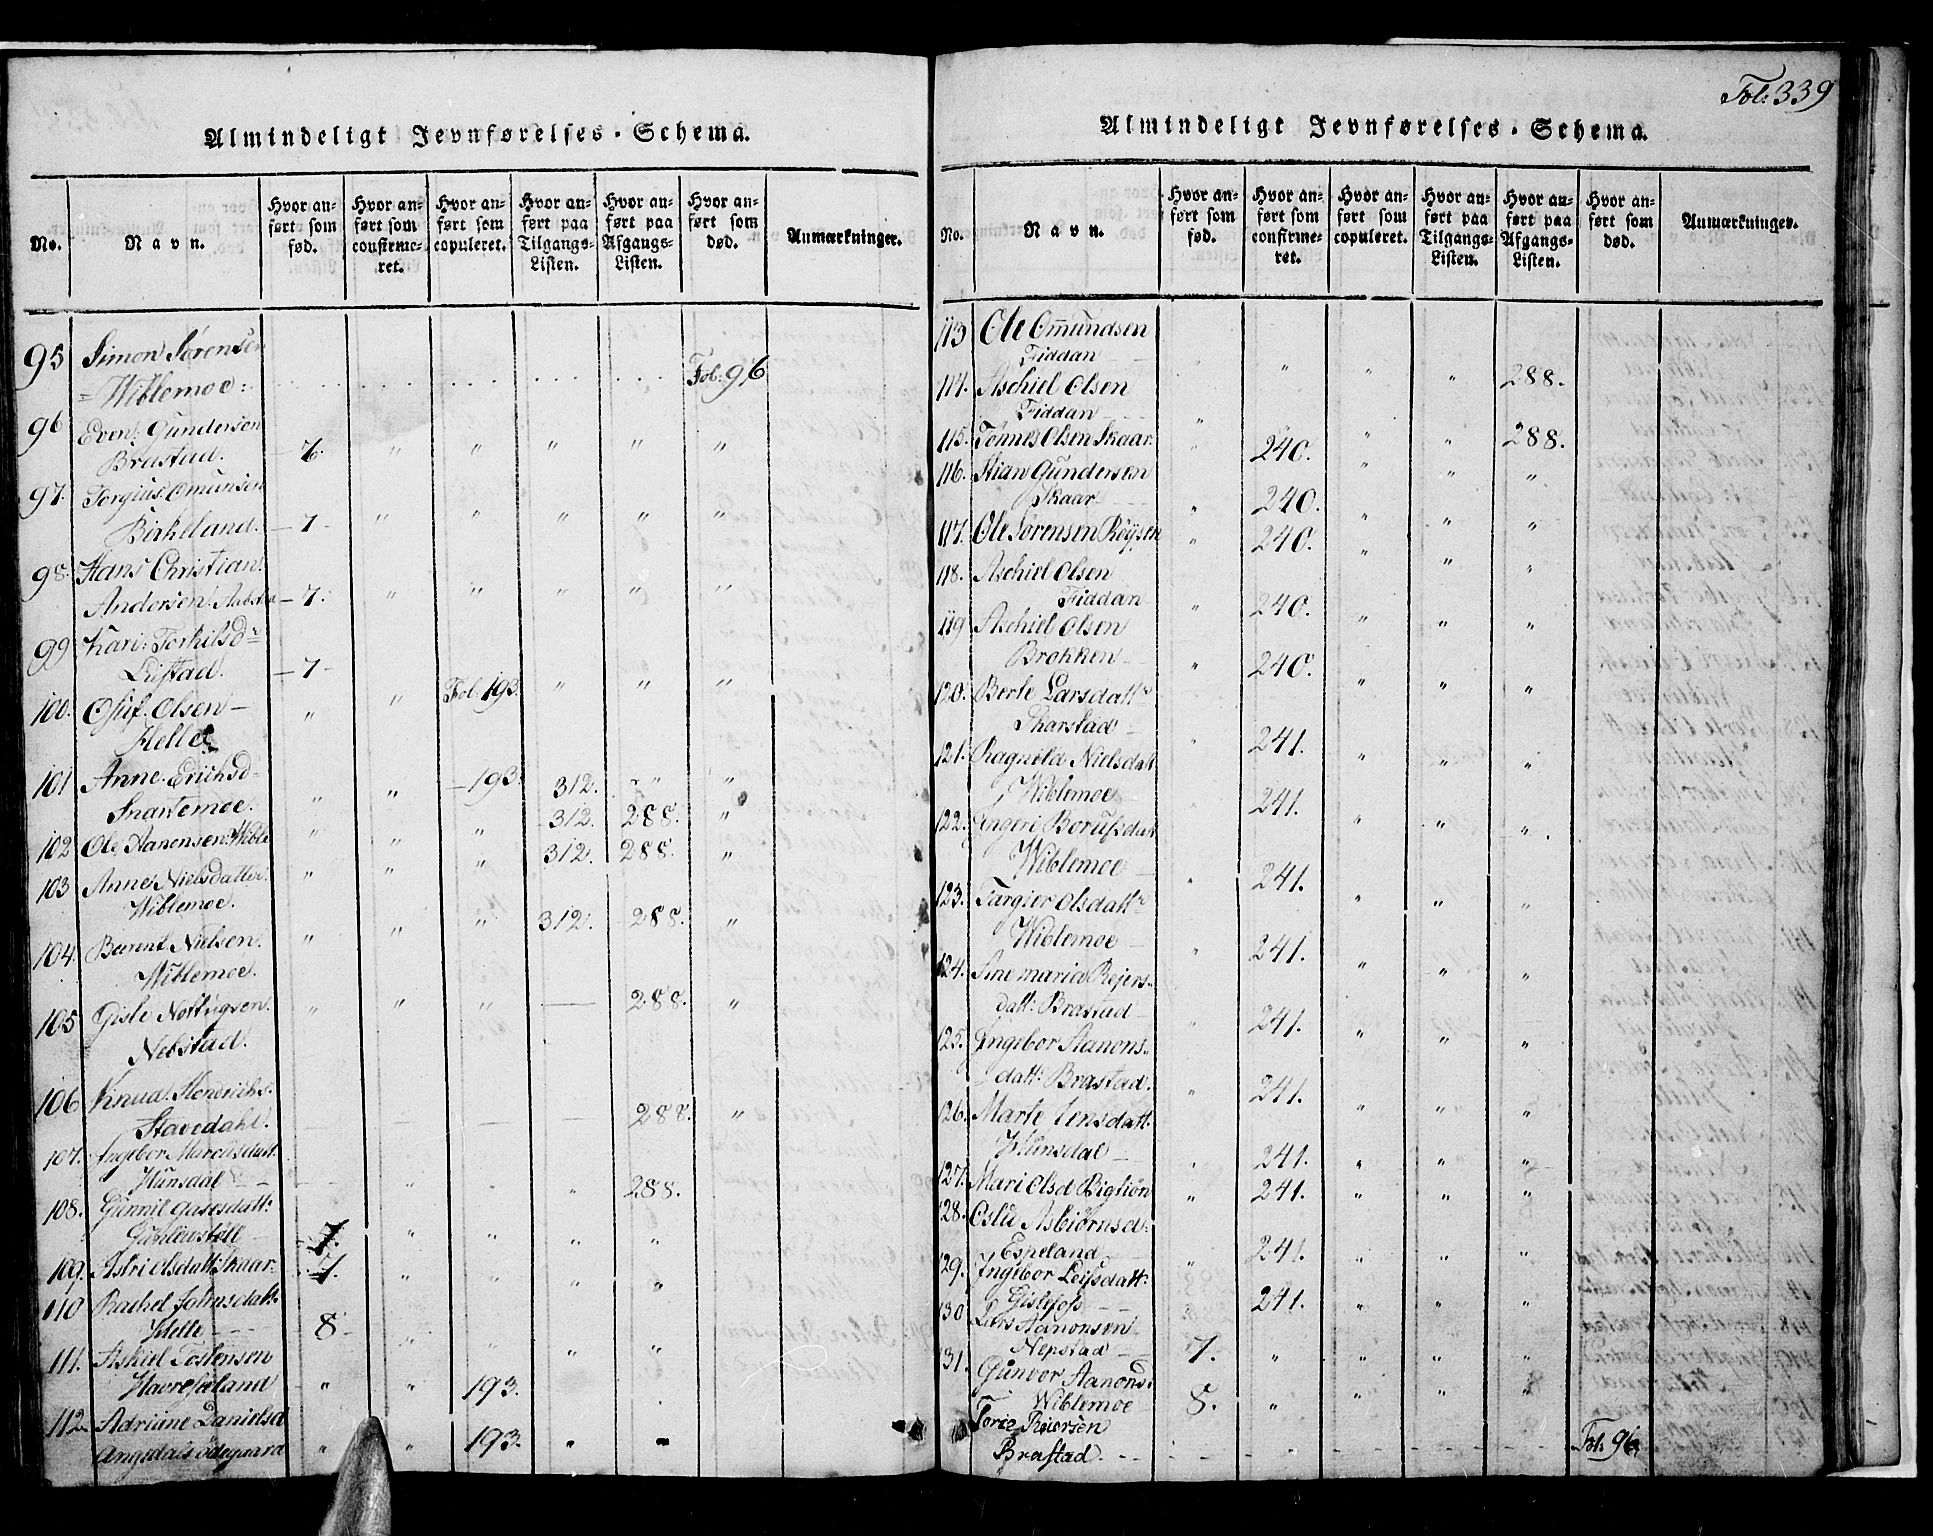 Almindeligt Jevnførelses-Schema.
No.
Navn.
Hvor an-
ført som
fød.
Hvor an-
ført som
confirme-
ret.
Hvor an-
ført som
copuleret.
Hvor an-
ført paa
Tilgangs-
Listen.
Hvor an-
ført paa
Afgangs-
Listen.
Hvor an-
ført som
død.
Anmærkninger.
95 Simon Sørensen
=Wiblemoe: Fol: 96
96 Even: Gundersøn
Brastad. – 7. " " " " "
97. Torgius: Omunsen
Birkeland. – 7 – " " " " "
98. Hans Christian:
Andersen – 7. " " " " "
99 Kari: Torkilsd=
Listad. – 7 –
100. Oluf. Olsen – " " Fol 193. " " "
Helle
101 Anne. Erichsd= " " – 193. 312. " "
Snartemoe. 312. 288. "
102 Ole Aanonsen: Wible " " " 312. 288. "
103 Anne Nielsdatter " " "
Wiblemoe. " 312. 288. "
104. Berent Nielsen. " "
Wiblemoe.
105 Gisle Nottugsen. " " " — 288. "
Nebstad.
106 Knud. Hendrichs.
Stavedahl. — 288. "
107. Ingebor Marcusdatt
Hunsdal – – " " " 288.
108. Gunnil Aasesdatt:
7. " " " "
109. Astri Olsdatt: Skaar. 7. " " " "
110 Rachel Johnsdatt:
Helle – – – 8 – " " " "
111. Askiel Tostensen
Haverseland " " 193.
112. Adriane Danielsd
Angedals ödegaard " " 193. " "
Fol: 339
Almindeligt Jevnførelses-Schema.
No.
Navn.
Hvor an-
ført som
fød.
Hvor an-
ført som
confirme-
ret.
Hvor an-
ført som
copuleret.
Hvor an-
ført paa
Tilgangs-
Listen.
Hvor an-
ført paa
Afgangs-
Listen.
Hvor an-
ført som
død.
Anmærkninger.
113 Ole Omundsen
Fiddan " " " " 288.
114. Aschiel Olsen
Fiddan
115. Tønnes Olsen Skaar. " 240. " " 288.
116. Stian Gundersen
Skaar " 240. " " "
117. Ole Sørensen Röysen " 240. " " "
118. Aschiel Olsen
Fiddan " 240. " " "
119 Aschiel Olsen
Brokken " 240. " " "
120. Berte Larsdatt
Skarstad " 241. " " "
121. Ragnild Nielsdatt
Wiblemoe 241. " " "
122. Ingeri
Wiblemoe " 241. " " "
123. Targier Olsdatt
Wiblemoe – " 241. " " "
124. Ane maria Rejers-
datt: Brastad – " 241. " " "
125. Ingebor Aanons-
datt: Brastad. " 241. " " "
126. Marte Jensdatt:
Hunsdal – " 241. " " "
127. Mari Olsd Bigtiön " 241. " " "
128. Oslu Asbiörnsd:
Espeland " 241. " " "
129. Ingebor Leifsdatt:
Gislefos – – " 241. " " "
130 Lars Aanonsen
Nepstad – 7. " " " "
131. Gunvor Aanons.
Wiblemoe 8. " " " "
Torie Reiersen
Brastad. – – Fol. 96.